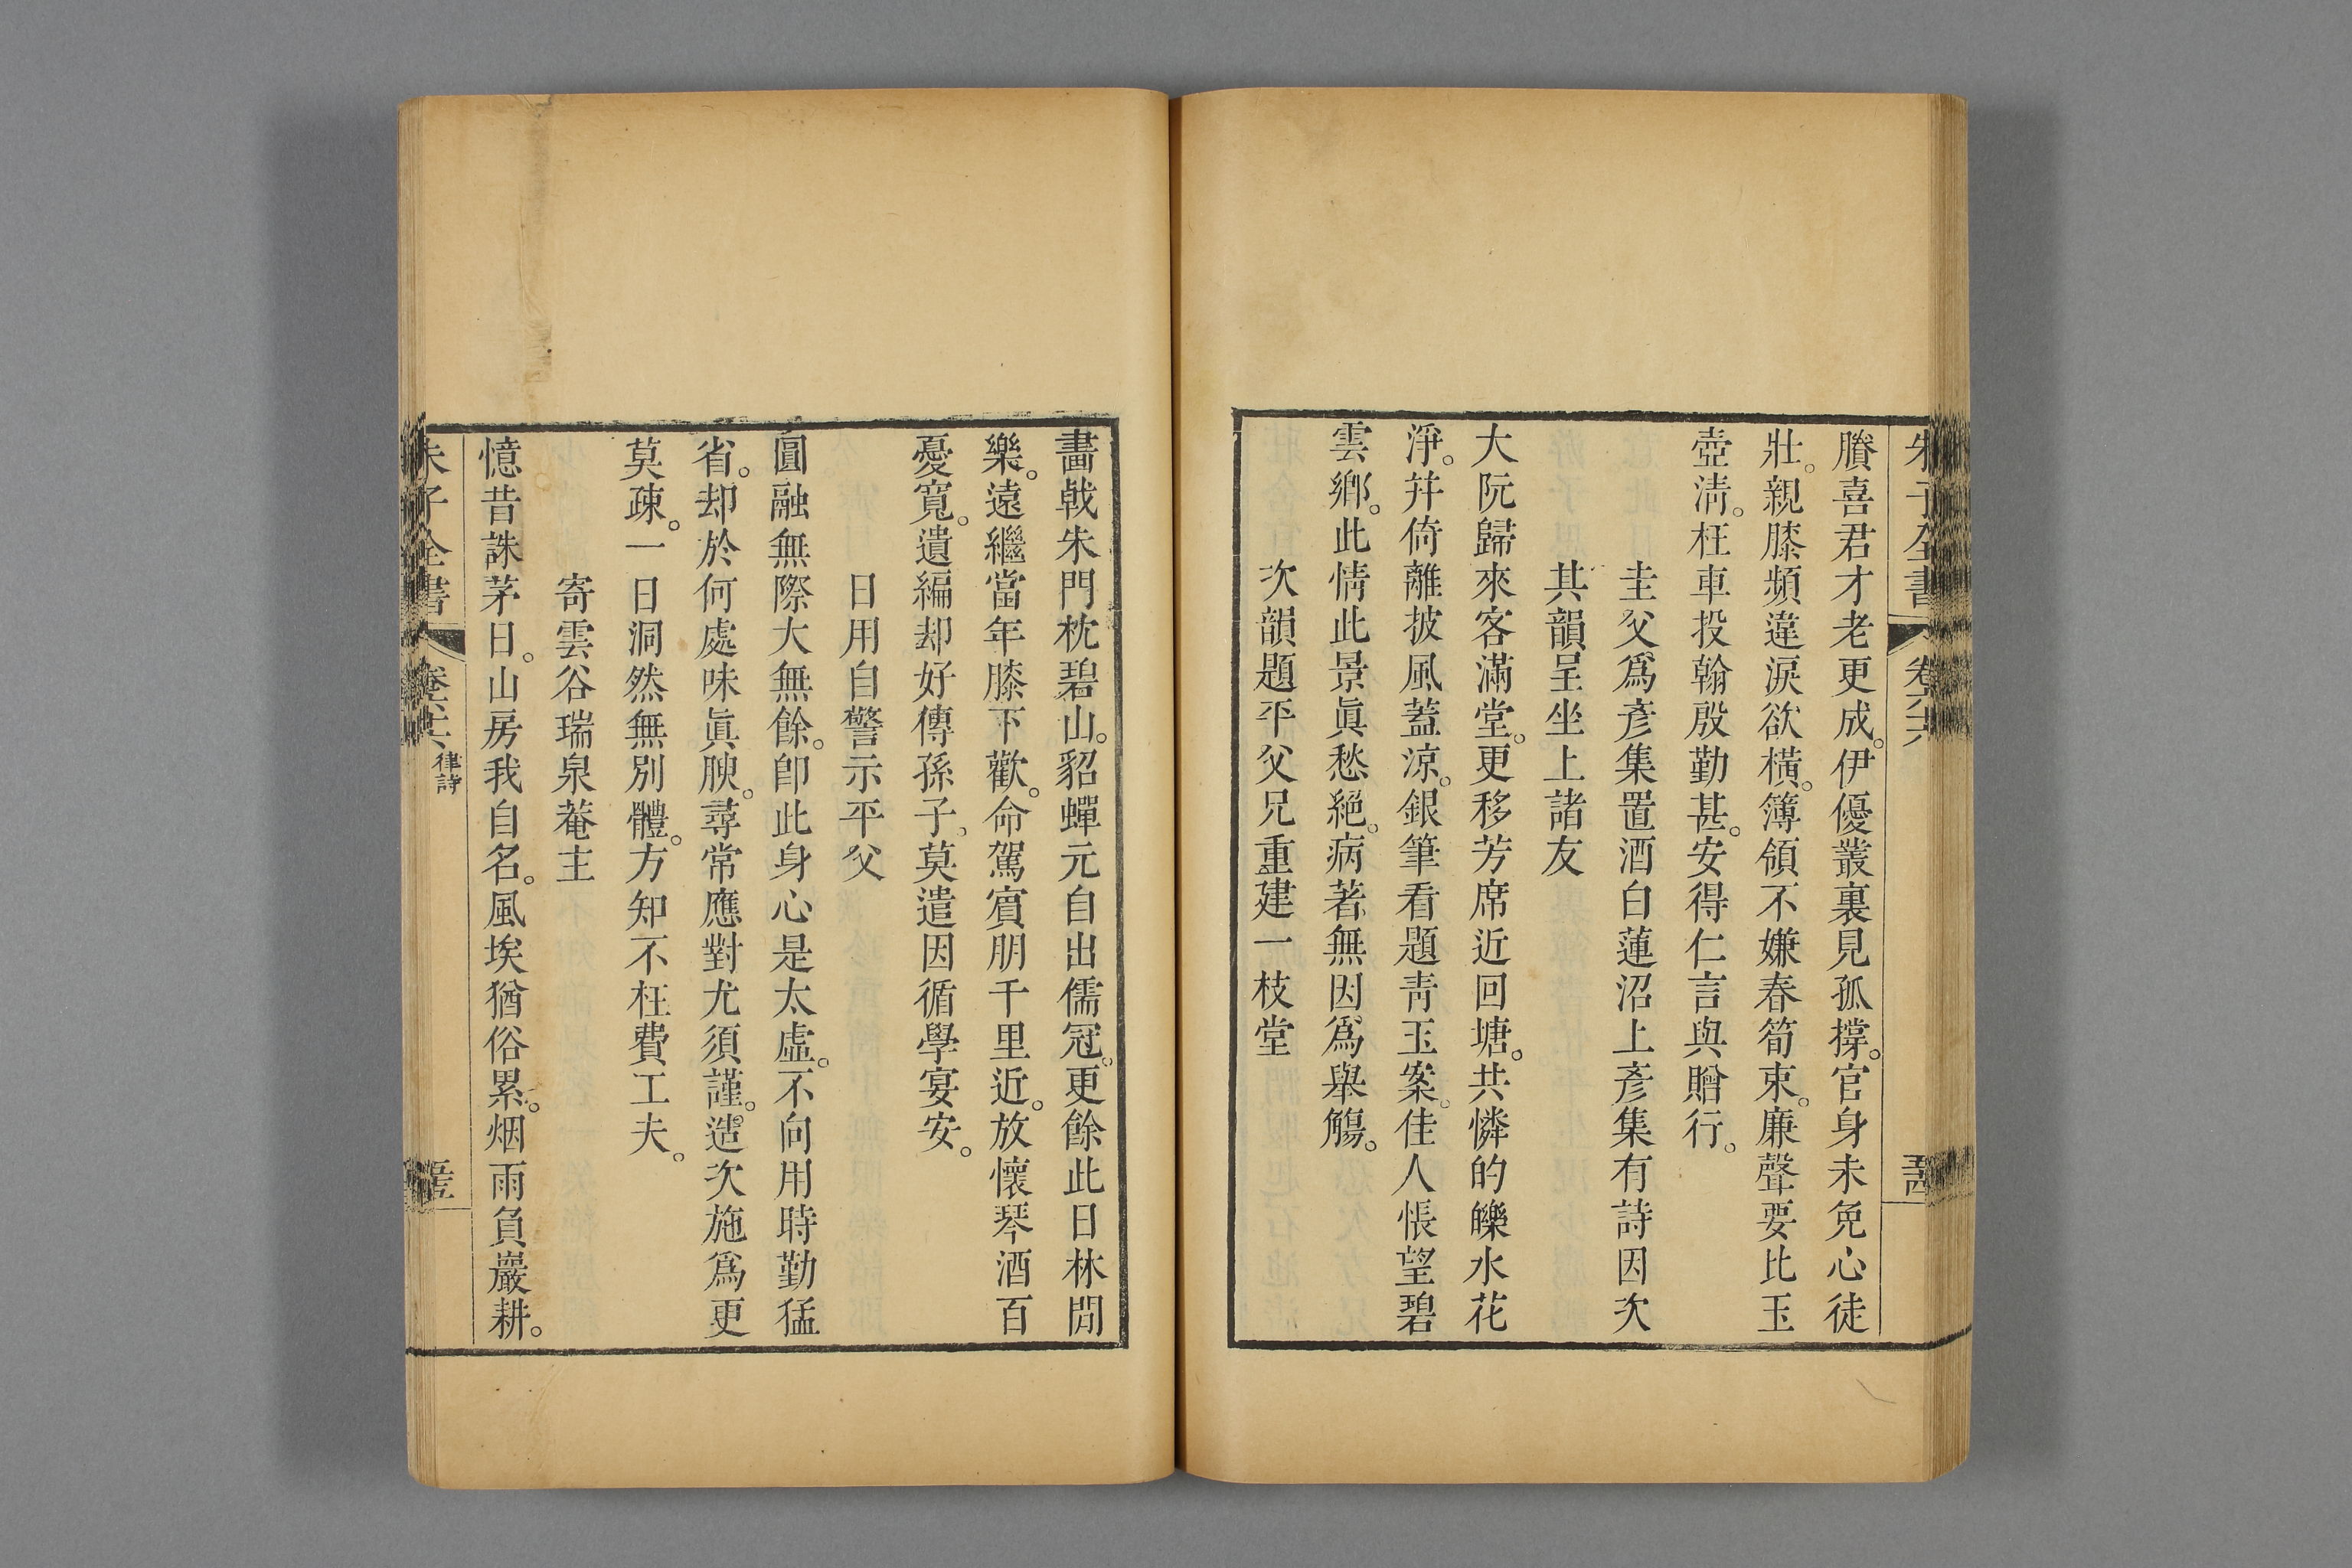 朱子全書 卷六十六 五十四
賸喜君才老更成。伊優叢裏見孤撐。官身未免心徒
壯。親膝頻違淚欲橫。簿領不嫌春筍束。廉聲要比玉
壺淸。枉車投翰殷勤甚。安得仁言與贈行。
圭父爲彥集置酒白蓮沼上彥集有詩因次
其韻呈坐上諸友
大阮歸來客滿堂。更移芳席近回塘。共憐的皪水花
淨。幷倚離披風蓋涼。銀筆看題靑玉案。佳人悵望碧
雲鄉。此情此景眞愁絕。病著無因爲舉觴。
次韻題平父兄重建一枝堂
畵戟朱門枕碧山。貂蟬元自出儒冠。更餘此日林閒
樂。遠繼當年膝下歡。命駕賓朋千里近。放懷琴酒百
憂寬。遺編却好傳孫子。莫遣因循學宴安。
日用自警示平父
圓融無際大無餘。卽此身心是太虛。不向用時勤猛
省。却於何處味眞腴。尋常應對尤須謹。造次施爲更
莫疎。一日洞然無別體。方知不枉費工夫。
寄雲谷瑞泉菴主
憶昔誅茅日。山房我自名。風埃猶俗累。烟雨負巖耕。
朱子全書 卷六十六 律詩 五十五